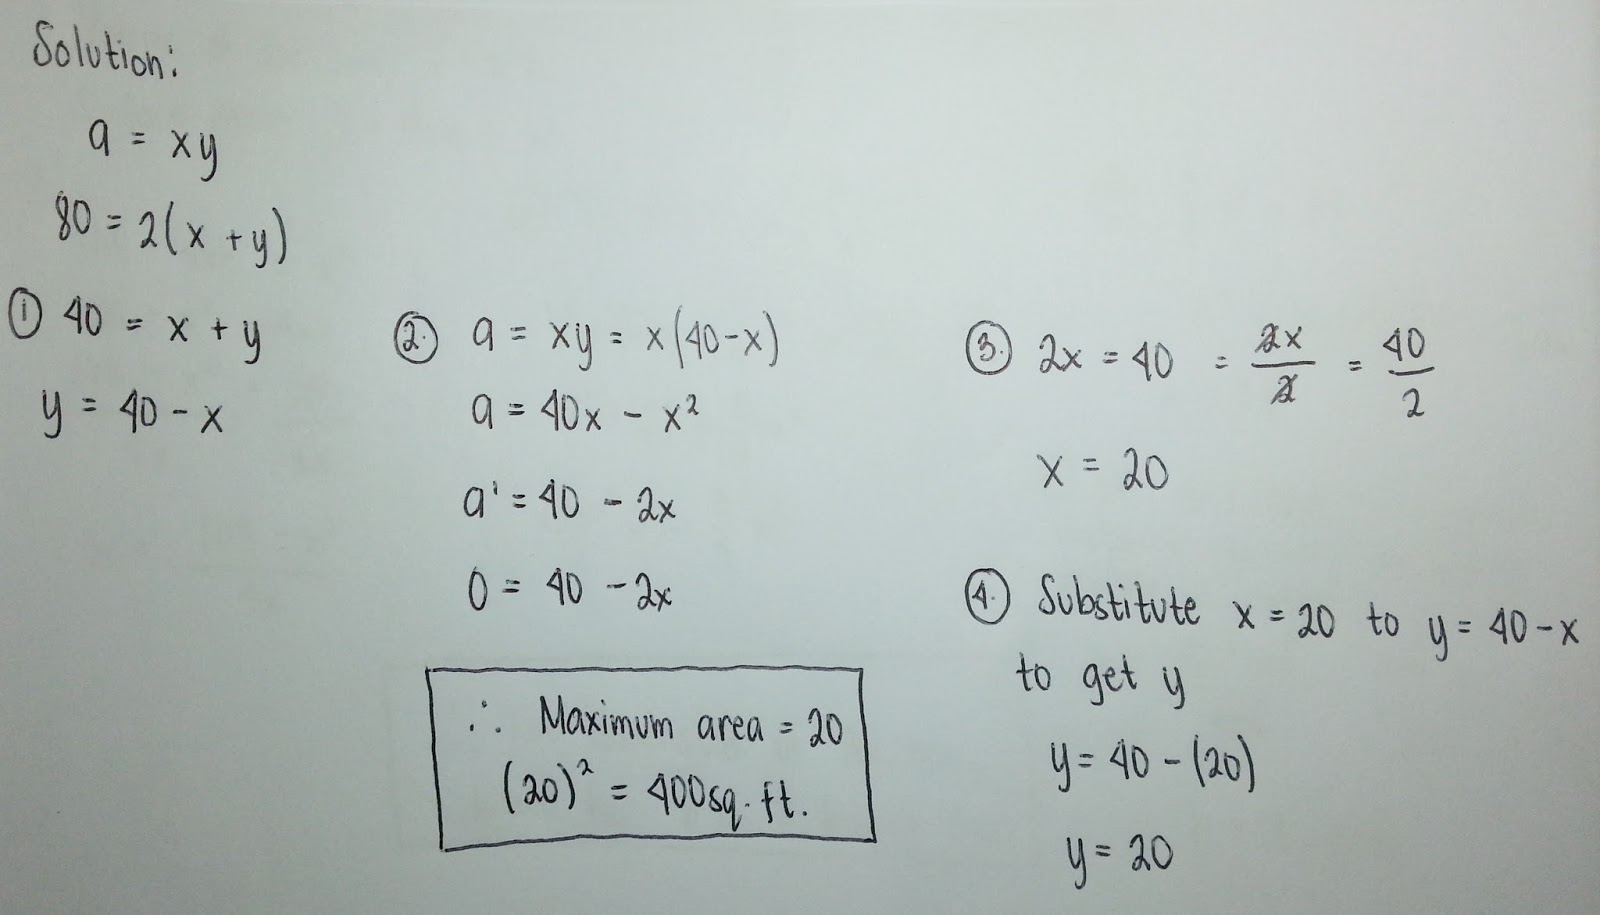 Solution:
a = xy
80 = 2(x + y)
① 40 = x + y
y = 40 - x
②. a = xy = x(40-x)
a = 40x - x²
a' = 40 - 2x
0 = 40 - 2x
∴ Maximum area = 20
(20)² = 400sq.ft.
③. 2x = 40 = 2x/2 = 40/2
x = 20
④. Substitute x = 20 to y = 40-x
to get y
y = 40 - (20)
y = 20